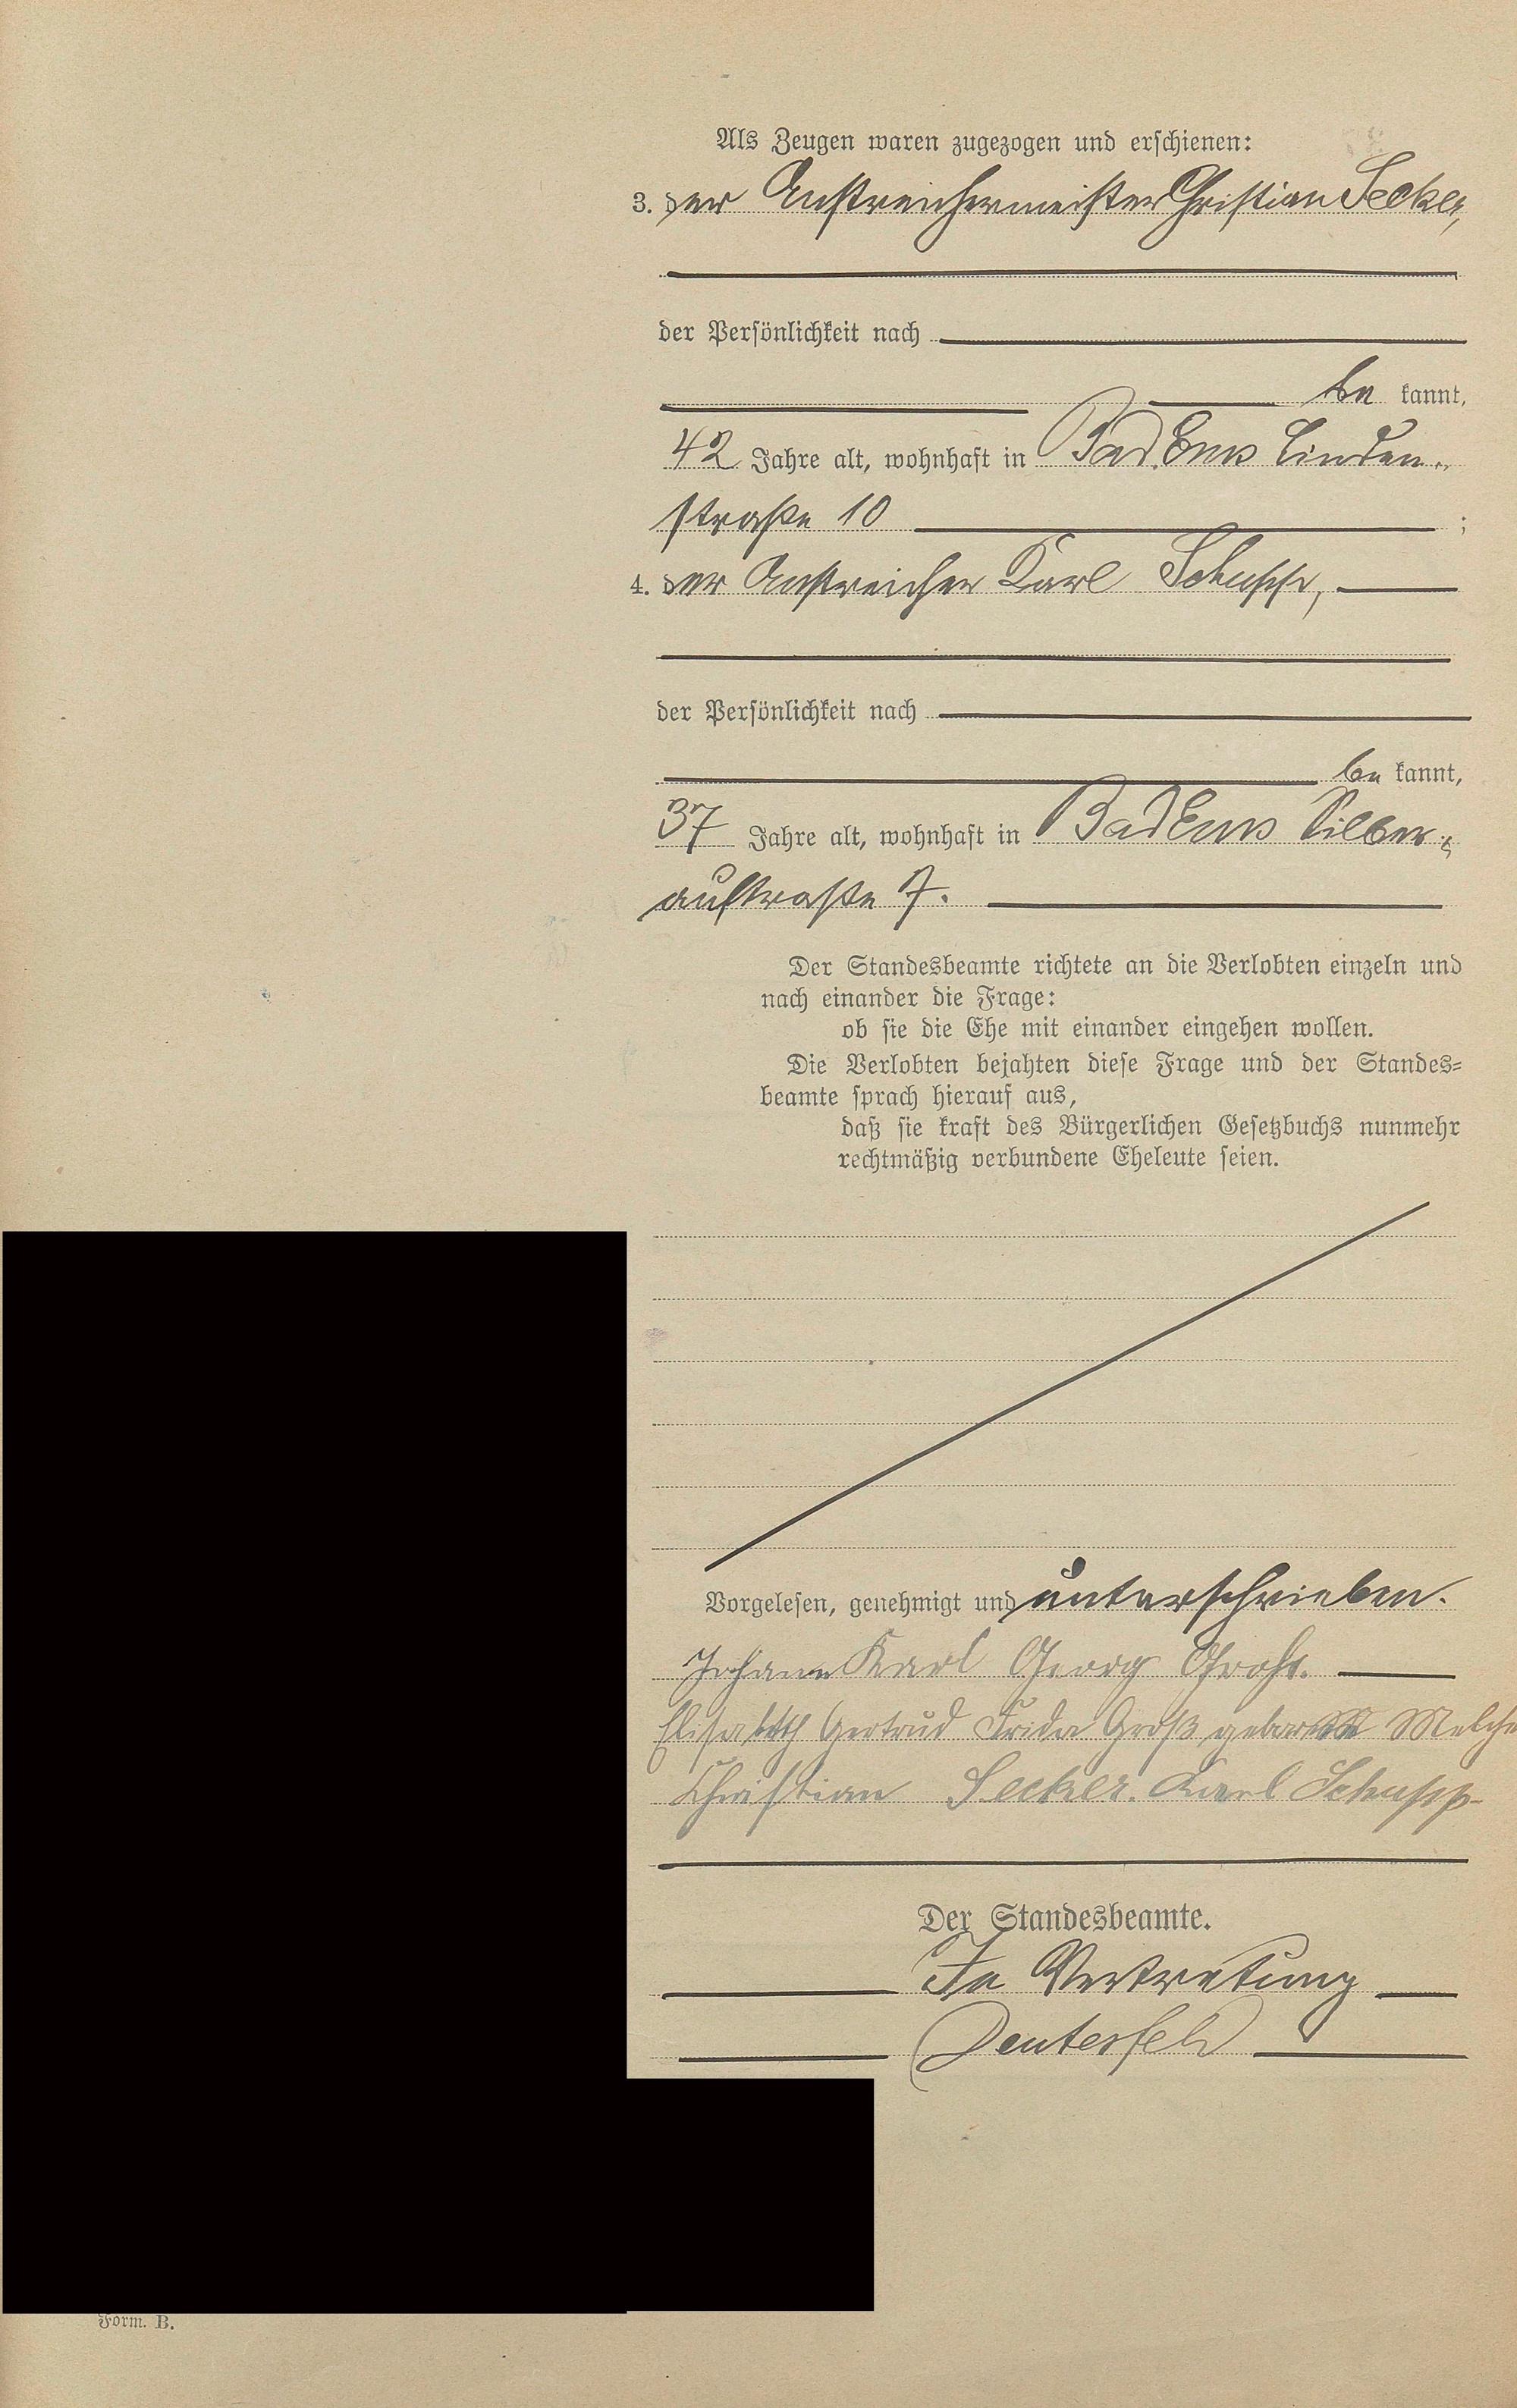 Als Zeugen waren zugezogen und erschienen:
3. der Anstreichermeister Christian Secker,
der Persönlichkeit nach
be kannt,
42 Jahre alt, wohnhaft in Bad Ems Linden-
straße 10 ;
4. der Anstreicher Karl Schupp,
der Persönlichkeit nach
be kannt,
37 Jahre alt, wohnhaft in Bad Ems Silber-
austraße 7.
Der Standesbeamte richtete an die Verlobten einzeln und
nach einander die Frage:
ob sie die Ehe mit einander eingehen wollen.
Die Verlobten bejahten diese Frage und der Standes-
beamte sprach hierauf aus,
daß sie kraft des Bürgerlichen Gesetzbuchs nunmehr
rechtmäßig verbundene Eheleute seien.
Vorgelesen, genehmigt und unterschrieben.
Johann Karl Georg Groß.
Elisabeth Gertrud Frida Groß geborene
Christian Secker. Karl Schupp
Der Standesbeamte.
In Vertretung
Form. B.